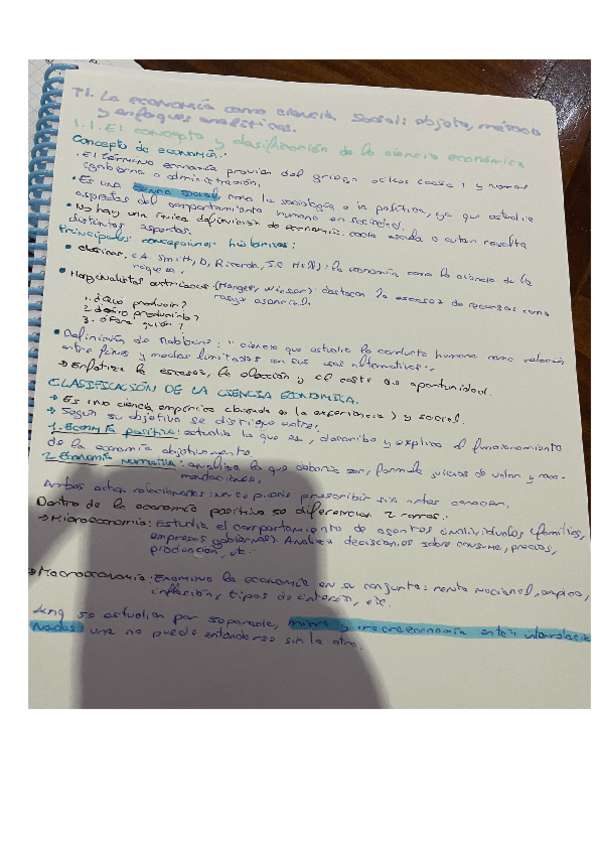 T1. La economía como ciencia social: objeto, método
y enfoques analíticos.
1.1. El concepto y clasificación de la ciencia económica
Concepto de economía:
· El término economía provien del griego oikos (casa) y nomos
(gobierno o administración).
• Es una ciencia social como la sociología o la política, ya que estudia
aspectos del comportamiento humano en sociedad.
• No hay una única definición de economía: cada escuela o autor resalta
distintos aspectos.
Principales concepciones históricas:
• clásicos (A. Smith, D. Ricardo, J.S Mill): la economía como la ciencia de la
riqueza.
• Marginalistas austríacos (Menger, Wieser): destacan la escasez de recursos como
rasgo esencial.
1. ¿Qué producir?
2. ¿Cómo producirlo?
3. ¿Para quién?
• Definición de Robbins: "ciencia que estudia la conducta humana como relación
entre fines y medios limitados en sus usos alternativos".
→ Enfatiza la escasez, la elección y el coste de oportunidad.
CLASIFICACIÓN DE LA CIENCIA ECONÓMICA.
→ Es una ciencia empírica (basada en la experiencia) y social.
→ Según su objetivo se distingue entre:
1. Economía positiva: estudia lo que es, describe y explica el funcionamiento
de la economía objetivamente.
2. Economía normativa: analiza lo que debería ser, formula juicios de valor y reco-
mendaciones.
Ambas están relacionadas: no se puede prescribir sin antes conocer.
Dentro de la economía positiva se diferencian 2 ramas:
→ Microeconomía: Estudia el comportamiento de agentes individuales (familias,
empresas, gobiernos). Analiza decisiones sobre consumo, precios,
producción, etc.
→ Macroeconomía: Examina la economía en su conjunto: renta nacional, empleo,
inflación, tipos de interés, etc.
Aunq se estudian por separado, micro y macroeconomía están interrelacio-
nadas: una no puede entenderse sin la otra.